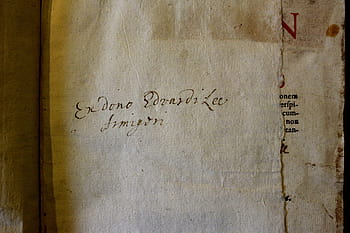 N
Ex dono Edvardi Lee
Armigeri
onem
cum-
non